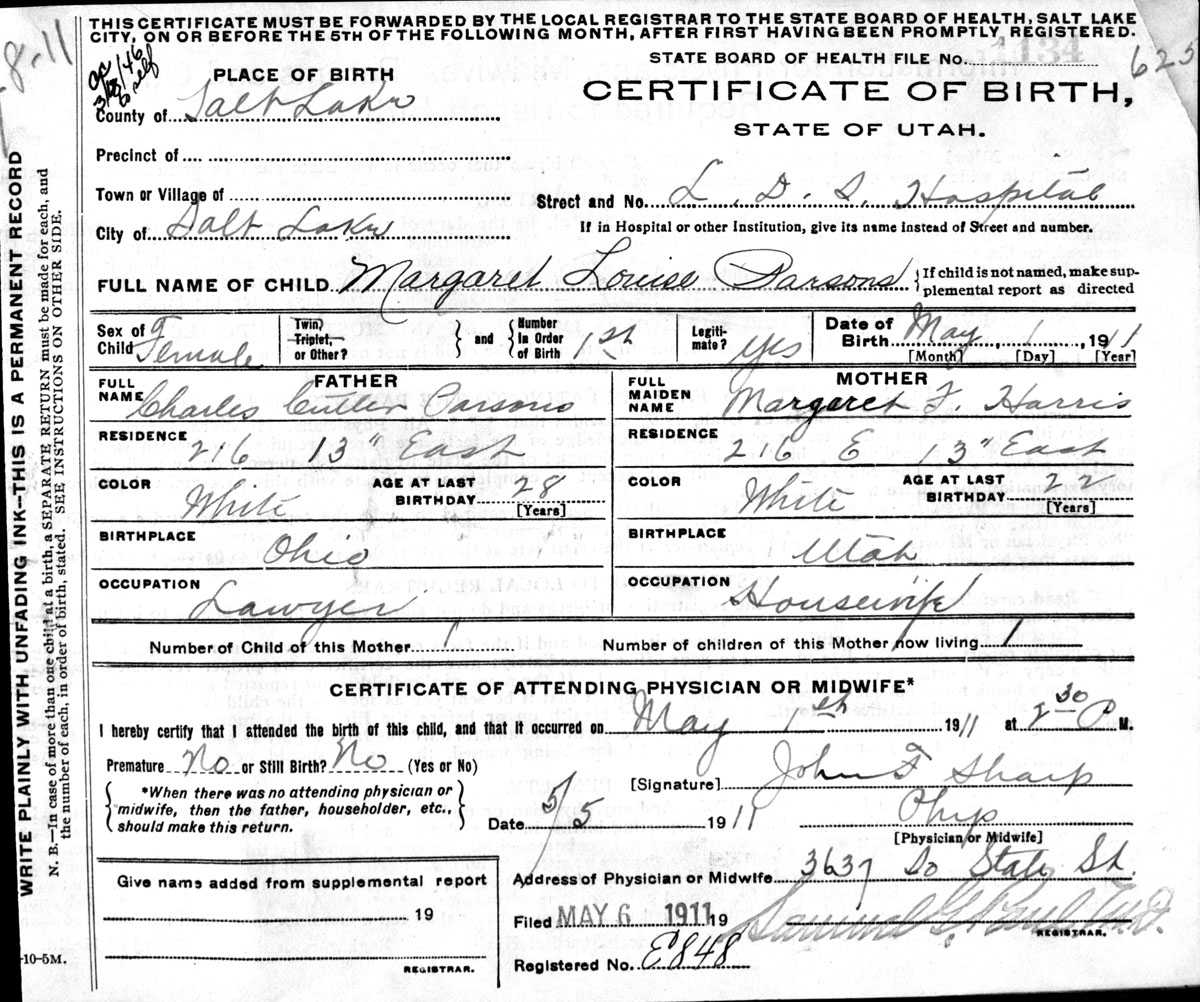 THIS CERTIFICATE MUST BE FORWARDED BY THE LOCAL REGISTRAR TO THE STATE BOARD OF HEALTH, SALT LAKE
CITY, ON OR BEFORE THE 5TH OF THE FOLLOWING MONTH, AFTER FIRST HAVING BEEN PROMPTLY REGISTERED.
8-11
STATE BOARD OF HEALTH FILE No. 1134
625
PLACE OF BIRTH
CERTIFICATE OF BIRTH,
County of Salt Lake
STATE OF UTAH.
Precinct of
Town or Village of
Street and No. L. D. S. Hospital
City of Salt Lake
If in Hospital or other Institution, give its name instead of Street and number.
FULL NAME OF CHILD Margaret Louise Parsons
{If child is not named, make sup-
plemental report as directed
Sex of Child Female
Twin, Triplet, or Other?
and
Number In Order of Birth 1st
Legiti-mate? yes
Date of Birth May 1 1911
[Month] [Day] [Year]
FATHER
FULL NAME Charles Cutler Parsons
RESIDENCE 216 13" East
COLOR White
AGE AT LAST BIRTHDAY 28 [Years]
BIRTHPLACE Ohio
OCCUPATION Lawyer
MOTHER
FULL MAIDEN NAME Margaret F. Harris
RESIDENCE 216 E 13" East
COLOR White
AGE AT LAST BIRTHDAY 22 [Years]
BIRTHPLACE Utah
OCCUPATION Housewife
Number of Child of this Mother 1
Number of children of this Mother now living 1
CERTIFICATE OF ATTENDING PHYSICIAN OR MIDWIFE*
I hereby certify that I attended the birth of this child, and that it occurred on May 1th 1911 at 2 30 P M.
Premature No or Still Birth? No (Yes or No)
[Signature] John F Sharp
*When there was no attending physician or
midwife, then the father, householder, etc.,
should make this return.
Date 5/5 1911
Phys
[Physician or Midwife]
Address of Physician or Midwife 3637 So State St.
Give name added from supplemental report
19
REGISTRAR.
Filed MAY 6 1911 19
REGISTRAR.
Registered No. E848
-10-5M.
WRITE PLAINLY WITH UNFADING INK—THIS IS A PERMANENT RECORD
N. B.—In case of more than one child at a birth, a SEPARATE RETURN must be made for each, and
the number of each, in order of birth, stated. SEE INSTRUCTIONS ON OTHER SIDE.